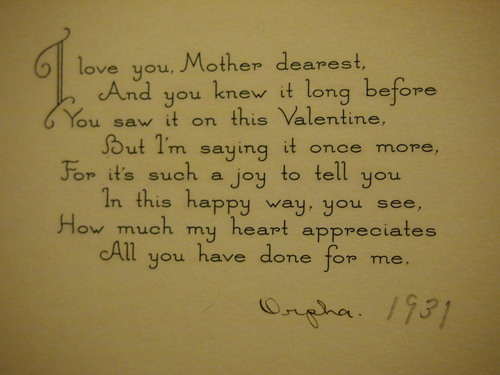 I love you, Mother dearest,
And you knew it long before
You saw it on this Valentine,
But I'm saying it once more,
For it's such a joy to tell you
In this happy way, you see,
How much my heart appreciates
All you have done for me.
Orpha. 1931